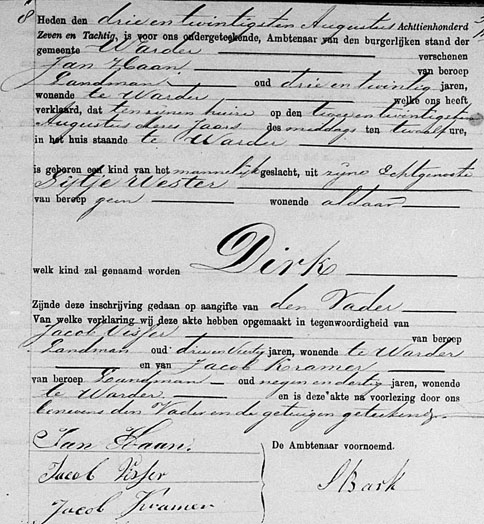 8 Heden den drie en twintigsten Augustus Achttienhonderd
Zeven en Tachtig, is voor ons ondergeteekende, Ambtenaar van den burgerlijken stand der
gemeente Warder verschenen
Jan Haan van beroep
Landman oud drie en twintig jaren,
wonende te Warder welke ons heeft
verklaard, dat ten zijnen huize op den twee en twintigsten
Augustus dezes Jaars des middags ten twaalf ure,
in het huis staande te Warder
is geboren een kind van het mannelijk geslacht, uit zijne Echtgenoote
Sijtje Wester
van beroep geen wonende aldaar
welk kind zal genaamd worden Dirk
Zijnde deze inschrijving gedaan op aangifte van den Vader
Van welke verklaring wij deze akte hebben opgemaakt in tegenwoordigheid van
Jacob Visser van beroep
Landman oud drie en Veertig jaren, wonende te Warder
en van Jacob Kramer
van beroep Landman oud negen en dertig jaren, wonende
te Warder en is deze akte na voorlezing door ons
benevens den Vader en de getuigen geteekend.
Jan Haan. De Ambtenaar voornoemd.
Jacob Visser S Bark
Jacob Kramer